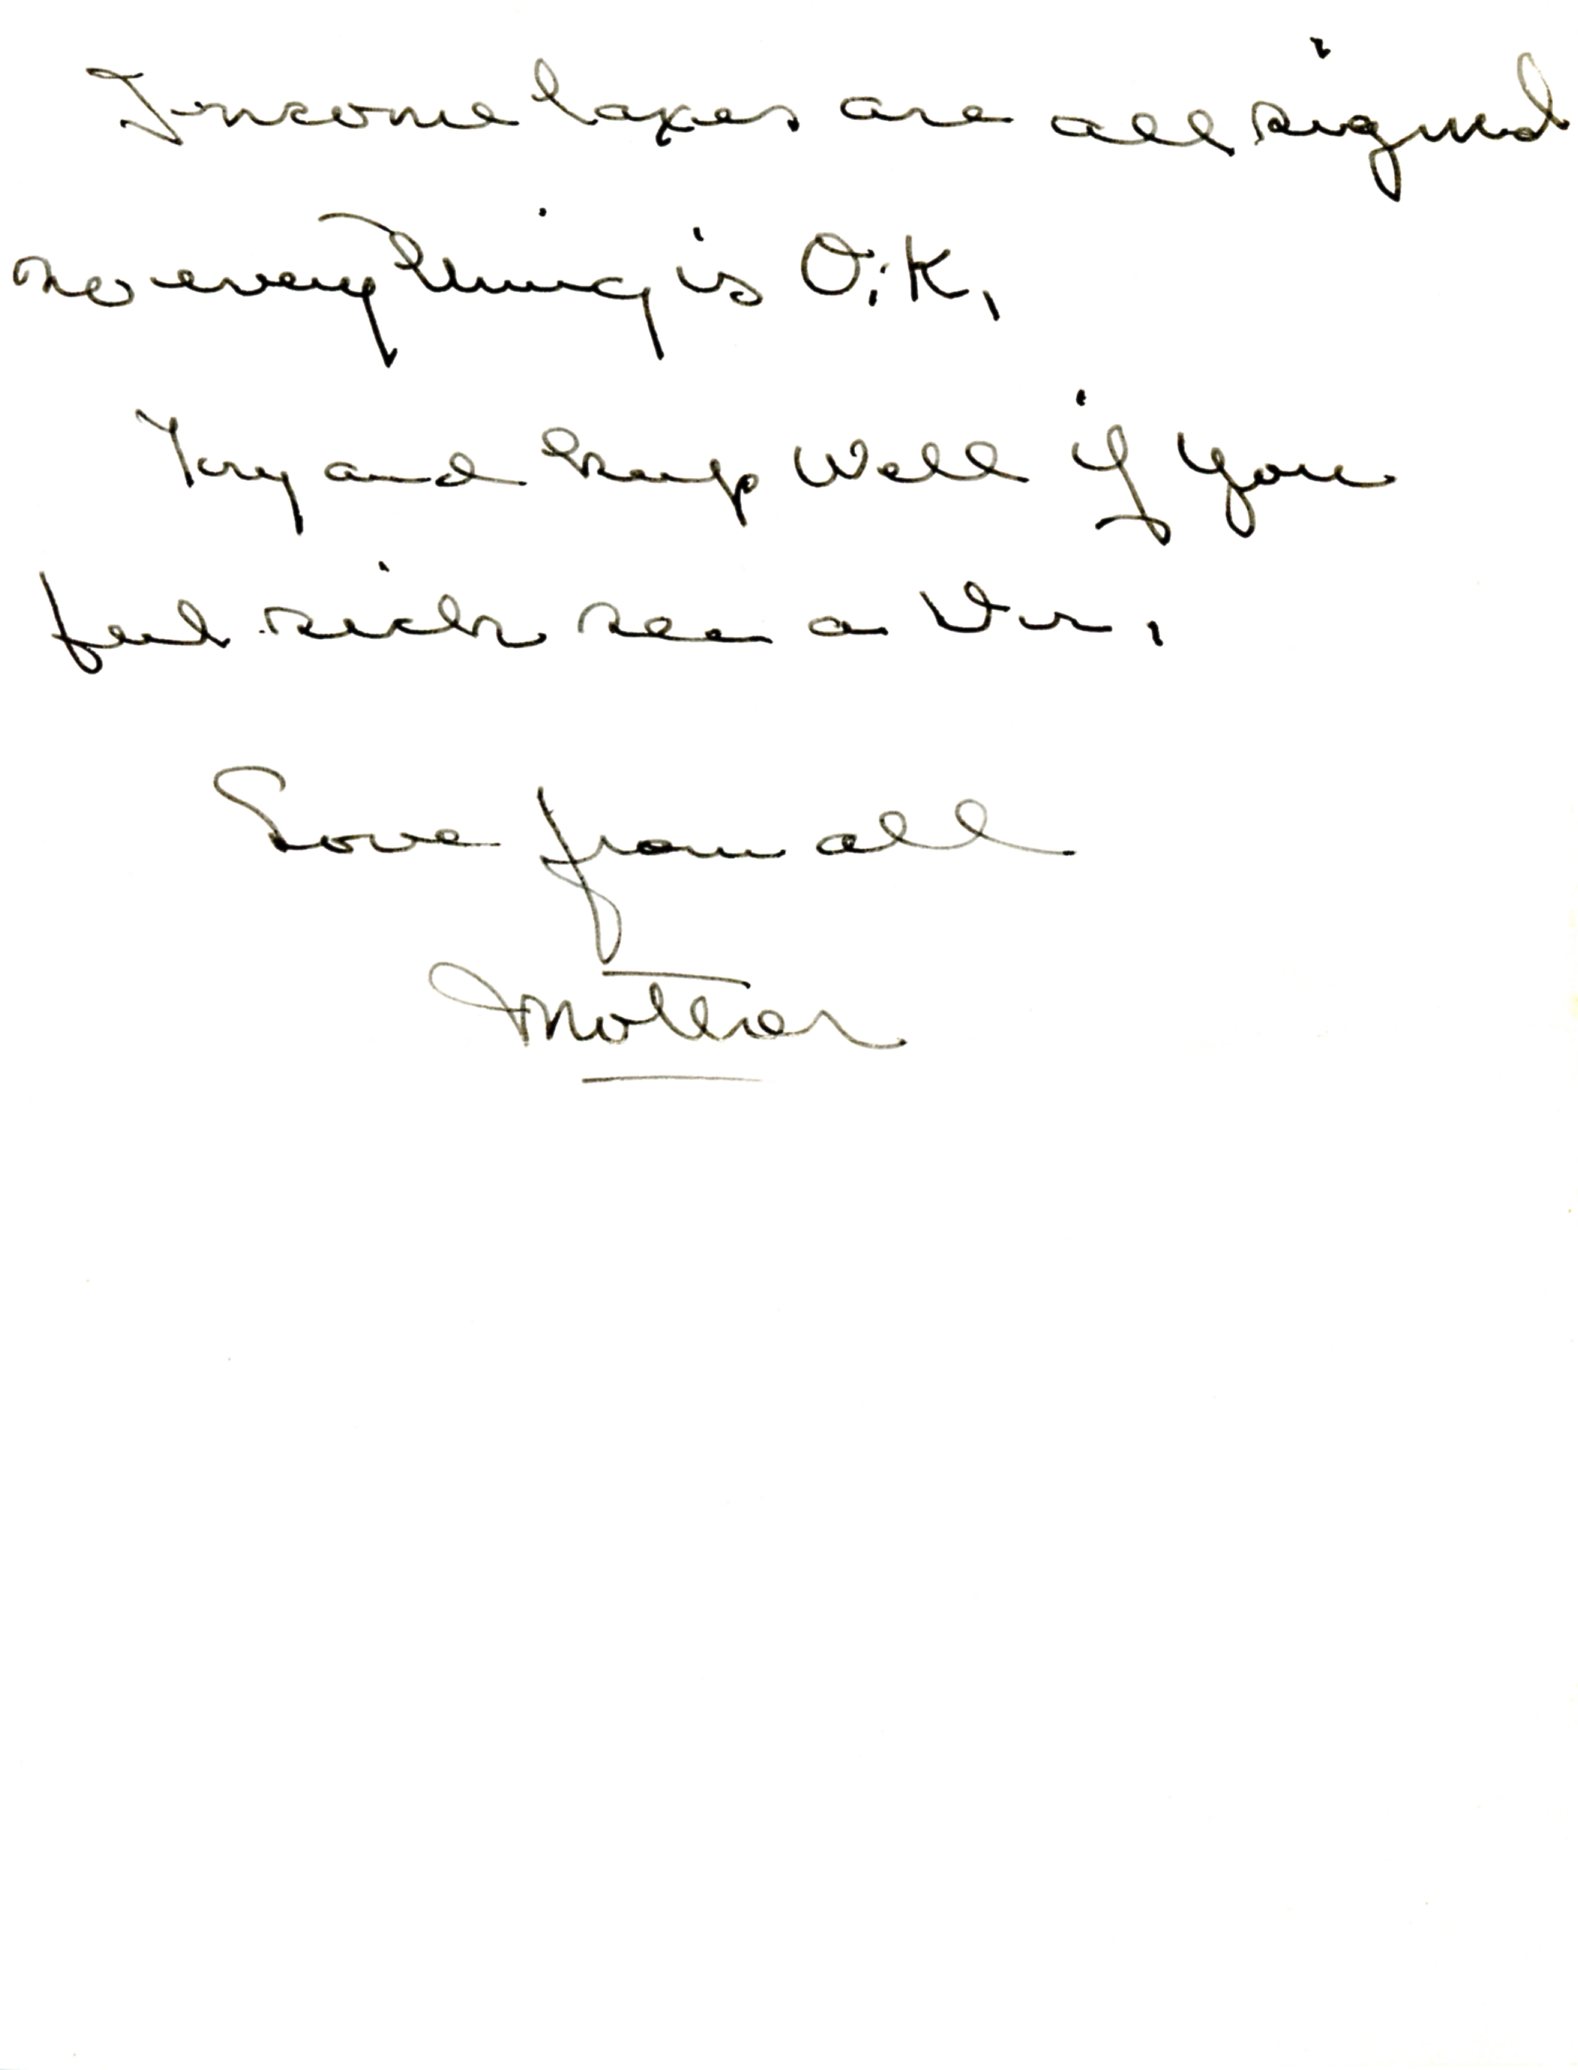 Income taxes are all signed
so everything is O.K.
Try and keep well if you
feel sick see a Dr.
Love from all
Mother